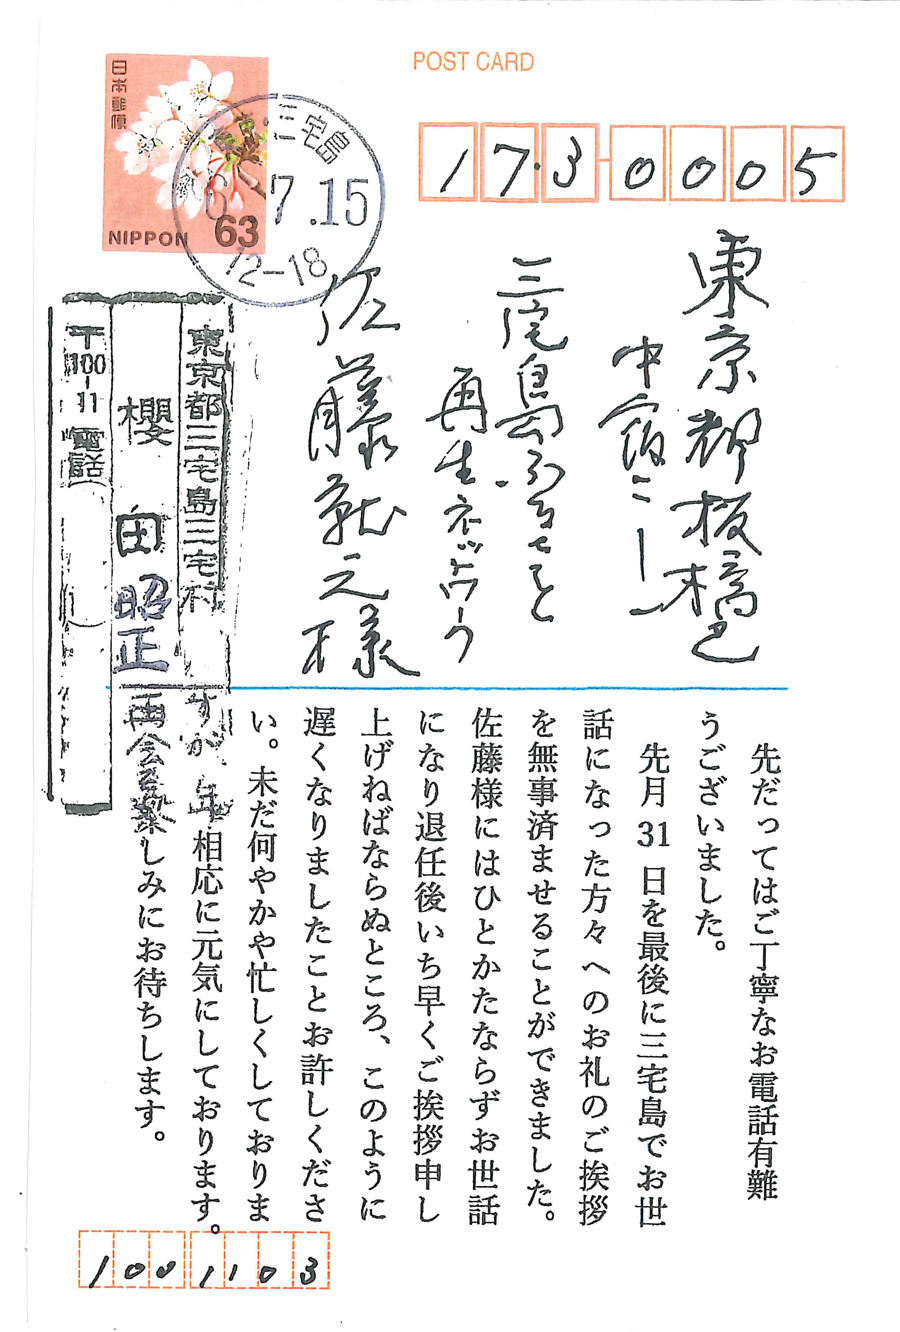 POST CARD
日本郵便
NIPPON 63
三宅島
6.7.15
12-18
173-0005
東京都板橋区
中宿二ー一
三宅島ふるさと
再生ネットワーク
佐藤就之様
東京都三宅島三宅村
櫻田昭正
〒100-11 電話
先だってはご丁寧なお電話有難
うございました。
先月31日を最後に三宅島でお世
話になった方々へのお礼のご挨拶
を無事済ませることができました。
佐藤様にはひとかたならずお世話
になり退任後いち早くご挨拶申し
上げねばならぬところ、このように
遅くなりましたことお許しくださ
い。未だ何やかや忙しくしておりま
すが年相応に元気にしております。
再会を楽しみにお待ちします。
1001103